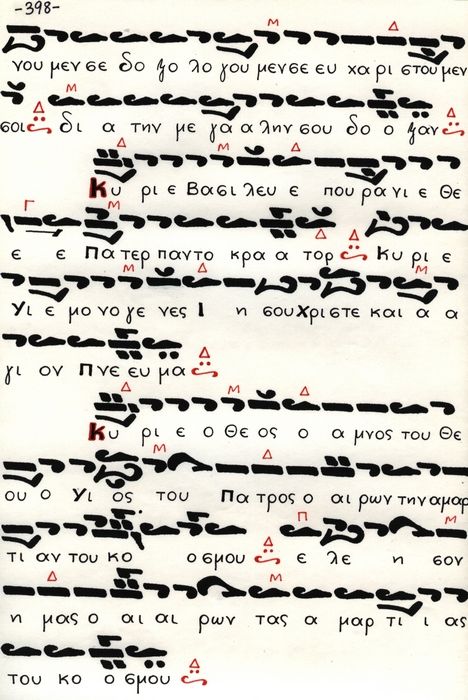 -398-
νου μεν σε δο ξο λο γου μεν σε ευ χα ρι στου μεν
σοι δι α την με γα α λην σου δο ο ξαν
Κυ ρι ε Βασι λευ ε που ρα νι ε Θε
ε ε Πα τερ παντο κρα α τορ Κυ ρι ε
Υι ε μο νο γε νες Ι η σου Χρι στε και α α
γι ον Πνε ευ μα
Κυ ρι ε ο Θε ος ο α μνος του Θε
ου ο Υι ος του Πα τρος ο αι ρων την αμαρ
τι αν του κο ο σμου ε λε η σον
η μας ο αι αι ρων τας α μαρ τι ι ας
του κο ο σμου